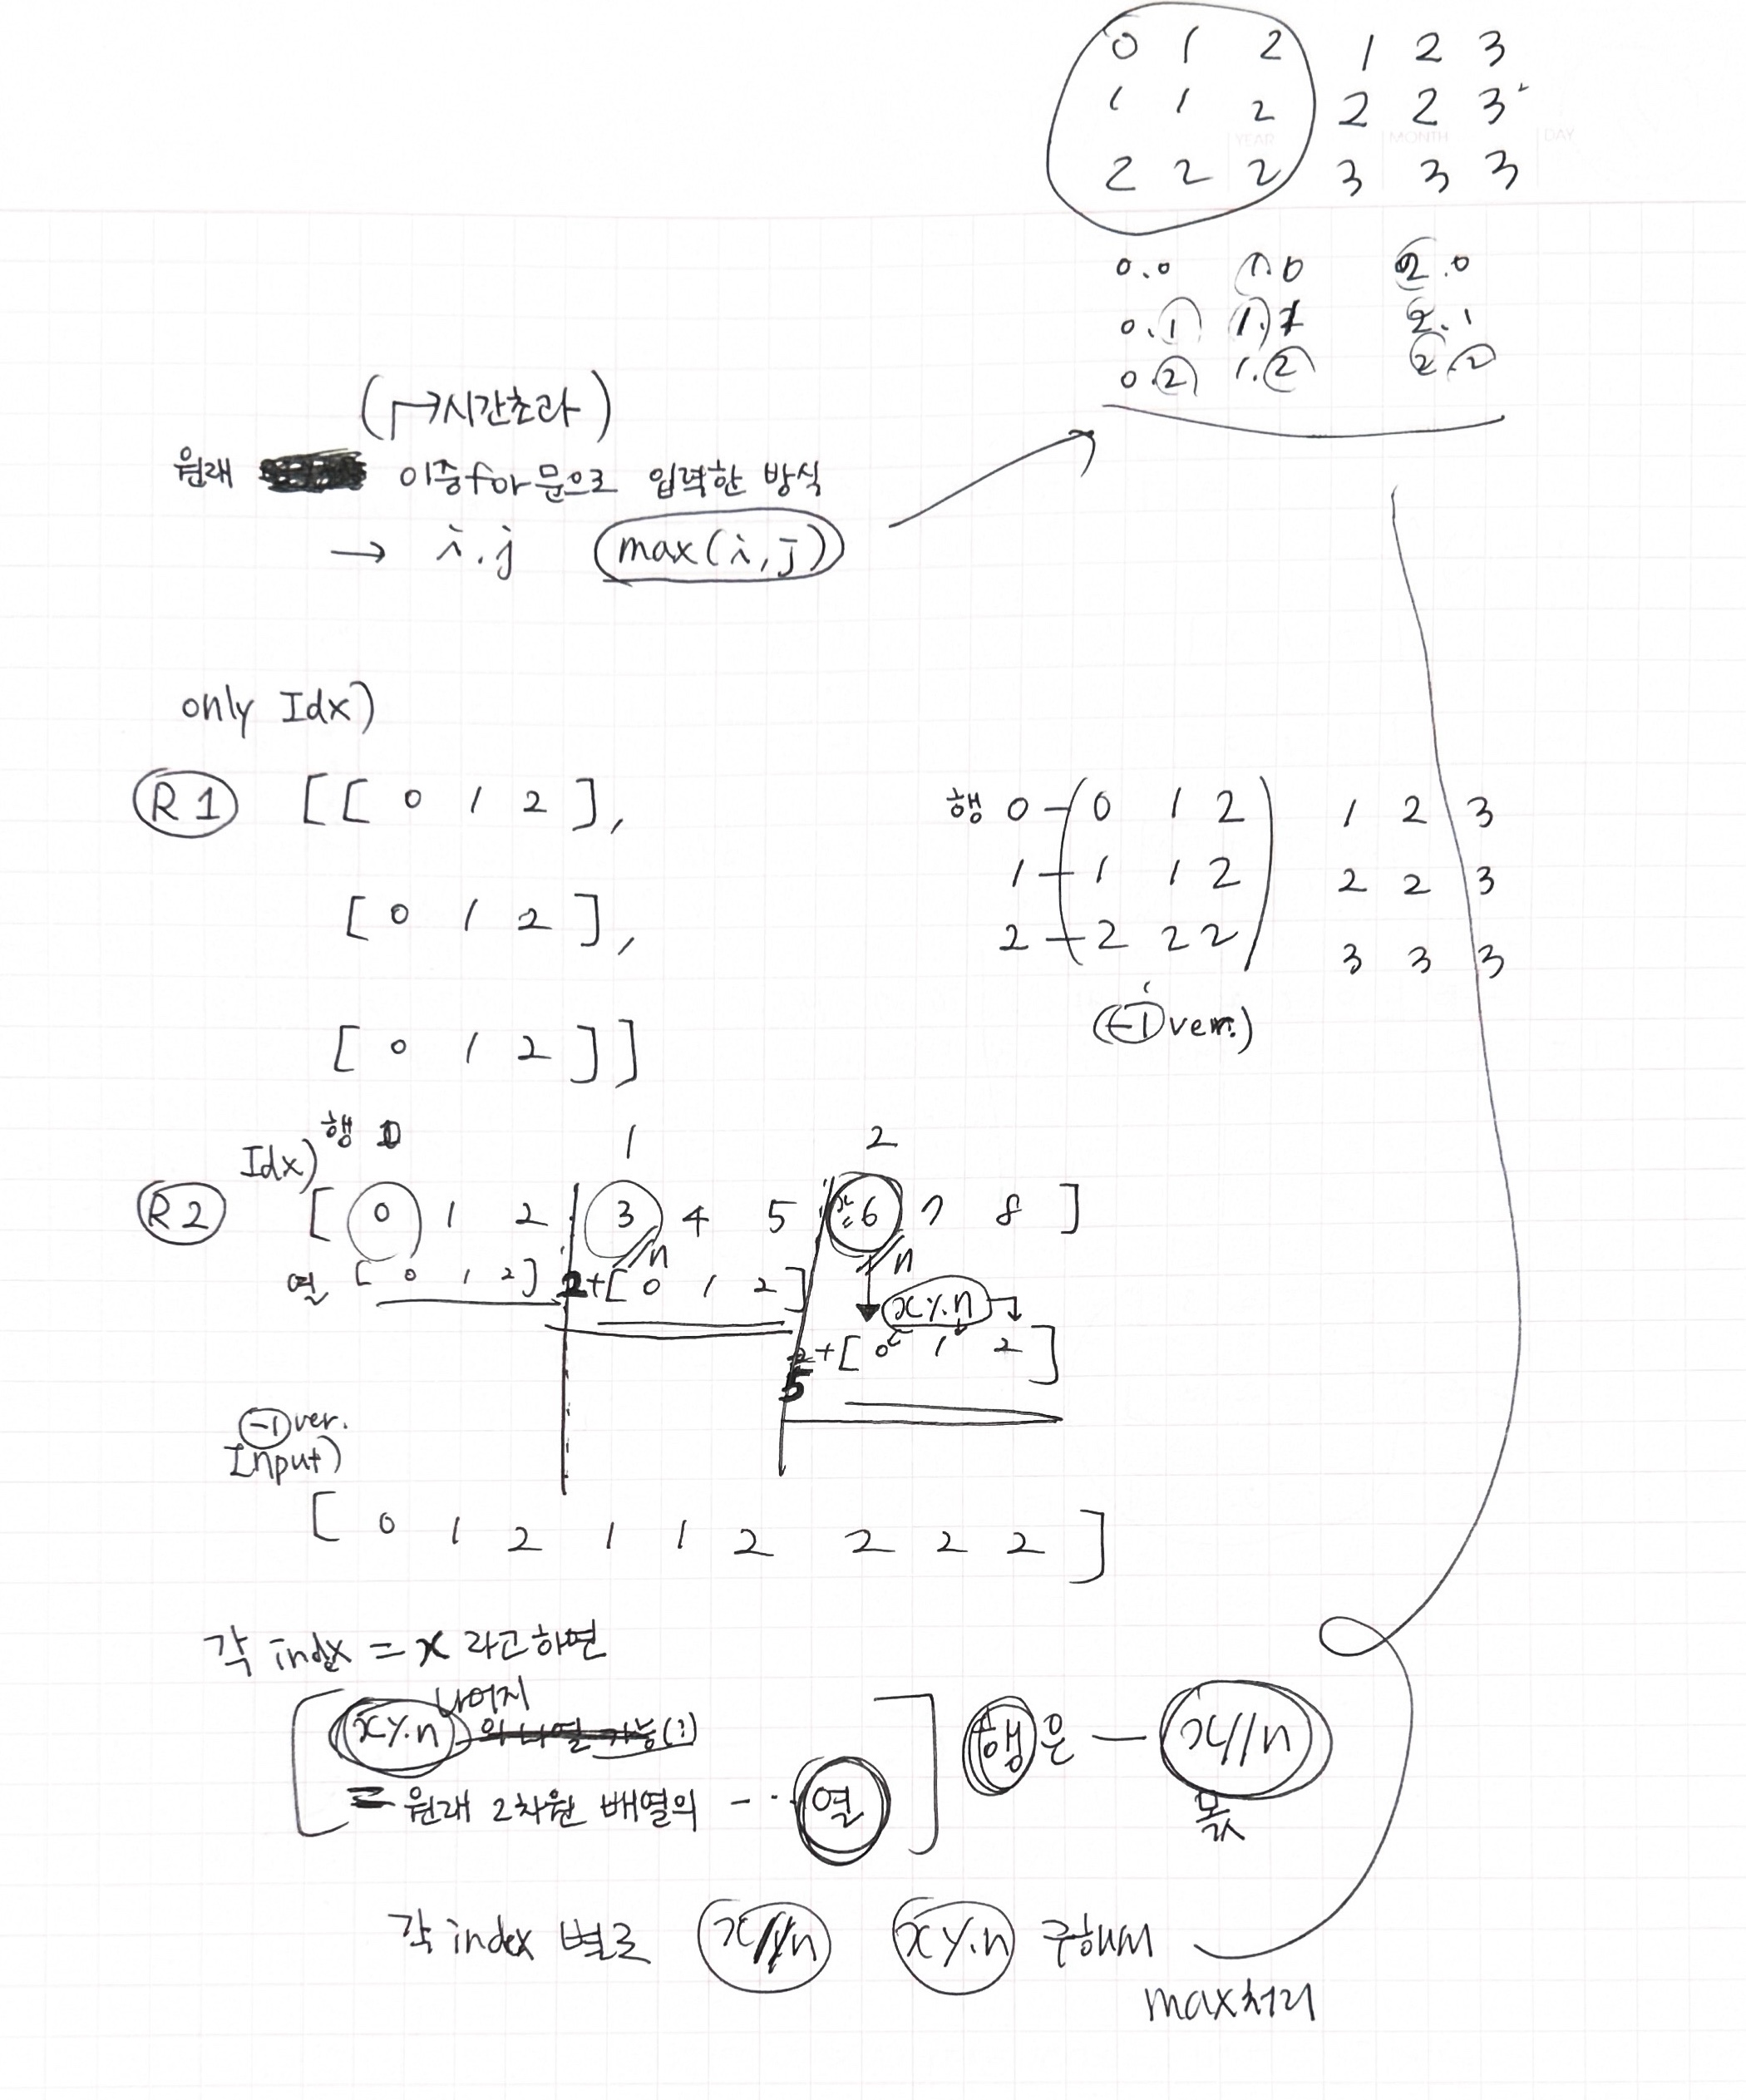 0 1 2 1 2 3
1 1 2 2 2 3
YEAR MONTH DAY
2 2 2 3 3 3
0.0 1.0 2.0
0.1 1.1 2.1
0.2 1.2 2.2
(↦시간초과)
원래 이중for문으로 입력한 방식
→ i.j max(i,j)
only Idx)
R1 [[ 0 1 2 ],
[ 0 1 2 ],
[ 0 1 2 ]]
행 0 - 0 1 2 1 2 3
1 - 1 1 2 2 2 3
2 - 2 2 2 3 3 3
(-1 ver.)
Idx) 행 0 1 2
R2 [ 0 1 2 3 4 5 6 7 8 ]
//n //n
열 [ 0 1 2 ] 2+[ 0 1 2 ]
x%n
5+[ 0 1 2 ]
-1 ver.
Input)
[ 0 1 2 1 1 2 2 2 2 ]
각 indx = x 라고하면
x%n 나머지
= 원래 2차원 배열의 --· 열
행은 — x//n
몫
각 index 별로 x//n x%n 구해서
max처리